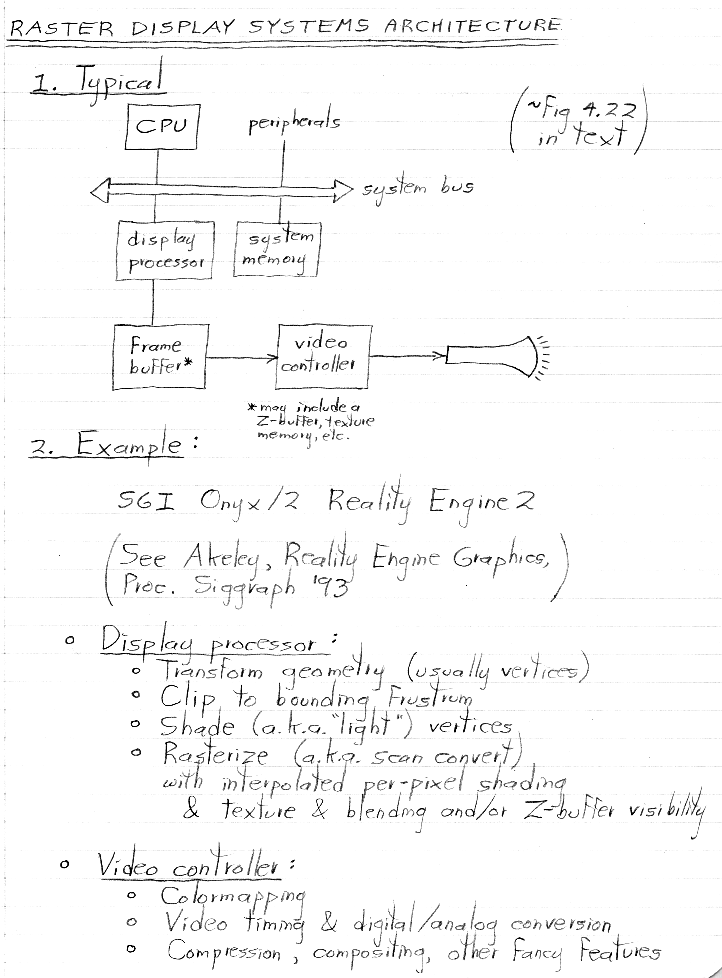 RASTER DISPLAY SYSTEMS ARCHITECTURE
1. Typical
(~Fig 4.22
in text)
CPU
peripherals
system bus
display
processor
system
memory
Frame
buffer*
video
controller
*may include a
Z-buffer, texture
memory, etc.
2. Example:
SGI Onyx/2 Reality Engine 2
(See Akeley, Reality Engine Graphics,
Proc. Siggraph '93)
o Display processor:
o Transform geometry (usually vertices)
o Clip to bounding Frustrum
o Shade (a.k.a. "light") vertices
o Rasterize (a.k.a. scan convert)
with interpolated per-pixel shading
& texture & blending and/or Z-buffer visibility
o Video controller:
o Colormapping
o Video timing & digital/analog conversion
o Compression, compositing, other fancy features